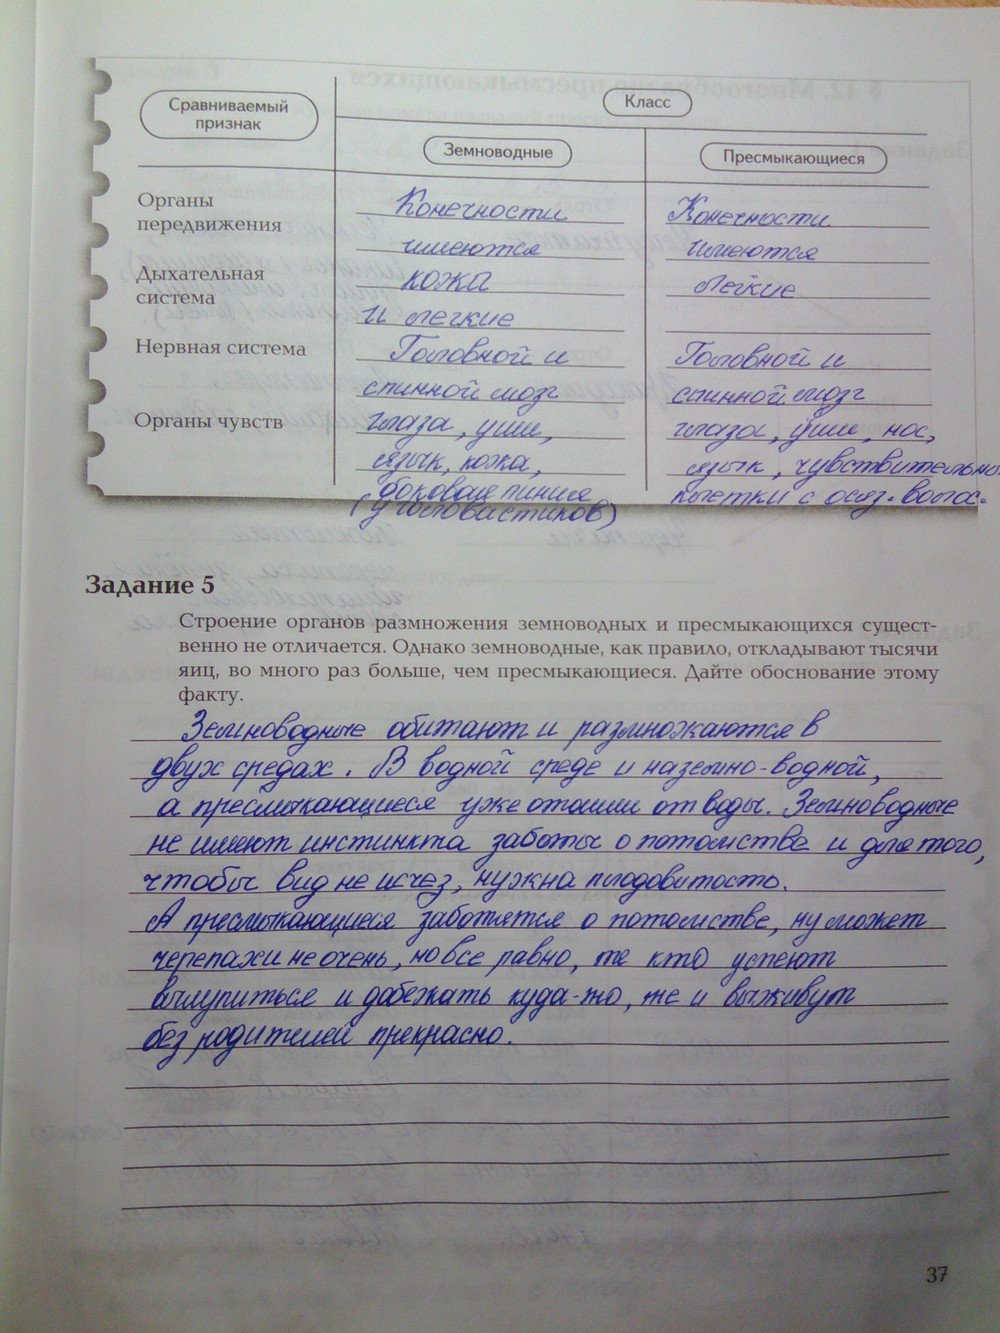 Сравниваемый
признак
Класс
Земноводные
Пресмыкающиеся
Органы
передвижения
Конечности
имеются
Конечности
имеются
Дыхательная
система
кожа
и легкие
легкие
Нервная система
Головной и
спинной мозг
Головной и
спинной мозг
Органы чувств
глаза, уши,
язык, кожа,
боковая линия
(у головастиков)
глаза, уши, нос,
язык, чувствительные
клетки с осяз. волос.
Задание 5
Строение органов размножения земноводных и пресмыкающихся сущест-
венно не отличается. Однако земноводные, как правило, откладывают тысячи
яиц, во много раз больше, чем пресмыкающиеся. Дайте обоснование этому
факту.
Земноводные обитают и размножаются в
двух средах. В водной среде и наземно-водной,
а пресмыкающиеся уже отошли от воды. Земноводные
не имеют инстинкта заботы о потомстве и для того,
чтобы вид не исчез, нужна плодовитость.
А пресмыкающиеся заботятся о потомстве, ну может
черепахи не очень, но все равно, те кто успеют
вылупиться и добежать куда-то, те и выживут
без родителей прекрасно.
37